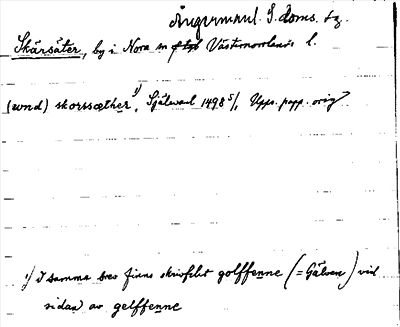 Ångermanl. S. doms. bg.
Skärsäter, by i Nora sn Västernorrlands l.
(vnd) skorssæther ¹⁾, Själevad 1498 5/1, Upps. papp. orig
¹⁾ I samma brev finns skrivfelet golffenne (= Gälven) vid
sidan av gelffenne